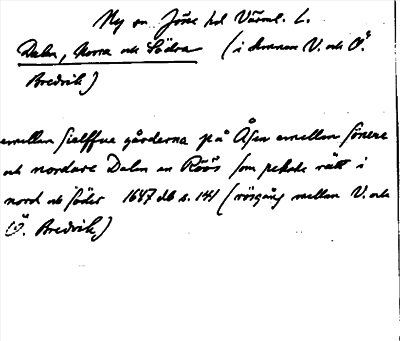 Ny sn Jösse hd Värml. L.
Dalen, Norra och Södra (i kanten V. och Ö.
Bredvik)
emellan sielffue gårderna på Åsen emellan sönere
och nordare Dalen en Röös som pekade rätt i
nord och söder 1647 db s. 144 (rågång mellan V. och
Ö. Bredvik)